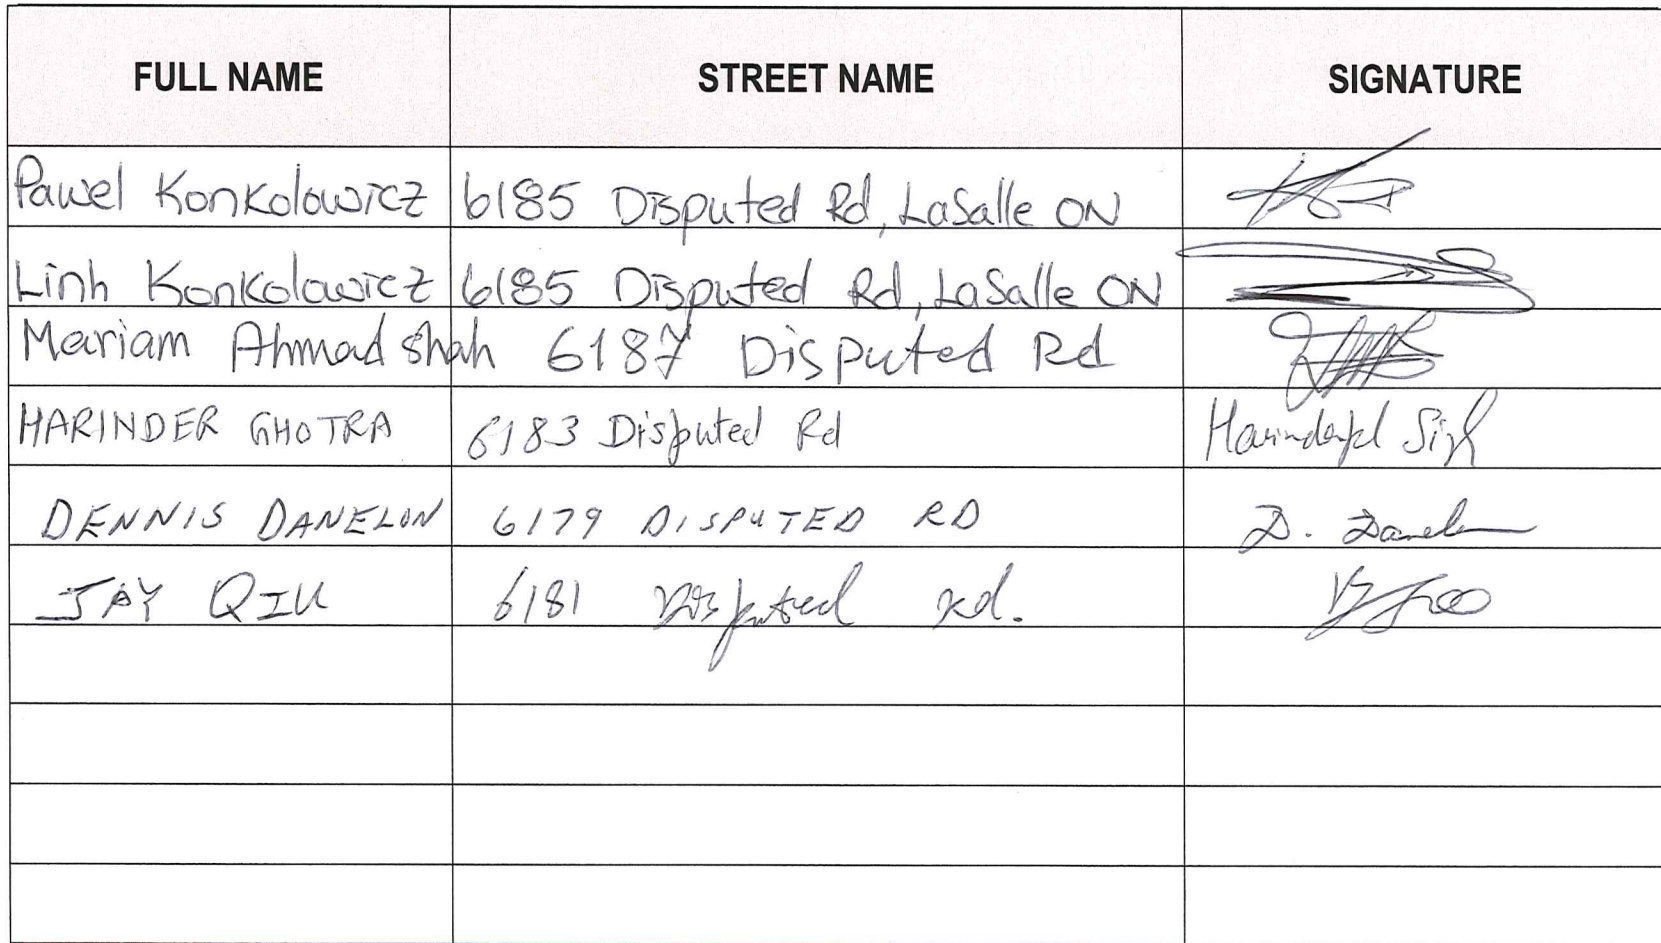 FULL NAME STREET NAME SIGNATURE
Pawel Konkolowicz 6185 Disputed Rd, LaSalle ON
Linh Konkolowicz 6185 Disputed Rd, LaSalle ON
Mariam Ahmad Shah 6187 Disputed Rd
HARINDER GHOTRA 6183 Disputed Rd
DENNIS DANELON 6179 DISPUTED RD D. Danelon
JAY QIU 6181 Disputed Rd.